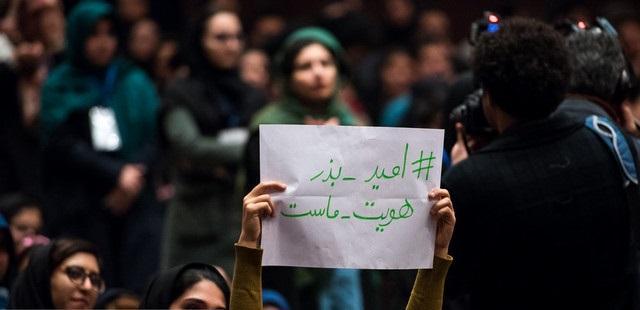 #امید_بذر
هویت_ماست